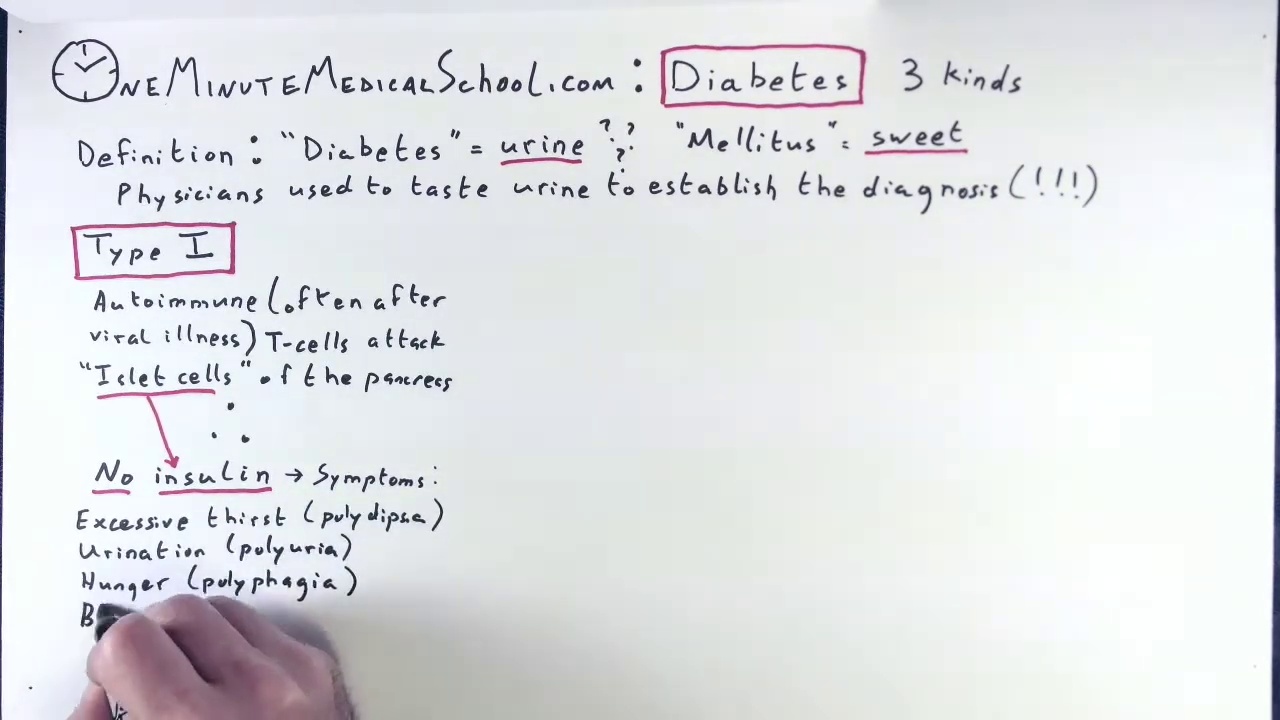 OneMinuteMedicalSchool.com : Diabetes 3 kinds
Definition : "Diabetes" = urine ??? "Mellitus" = sweet
Physicians used to taste urine to establish the diagnosis (!!!)
Type I
Autoimmune (often after
viral illness) T-cells attack
"Islet cells" of the pancreas
∴
No insulin → Symptoms:
Excessive thirst (polydipsia)
Urination (polyuria)
Hunger (polyphagia)
B